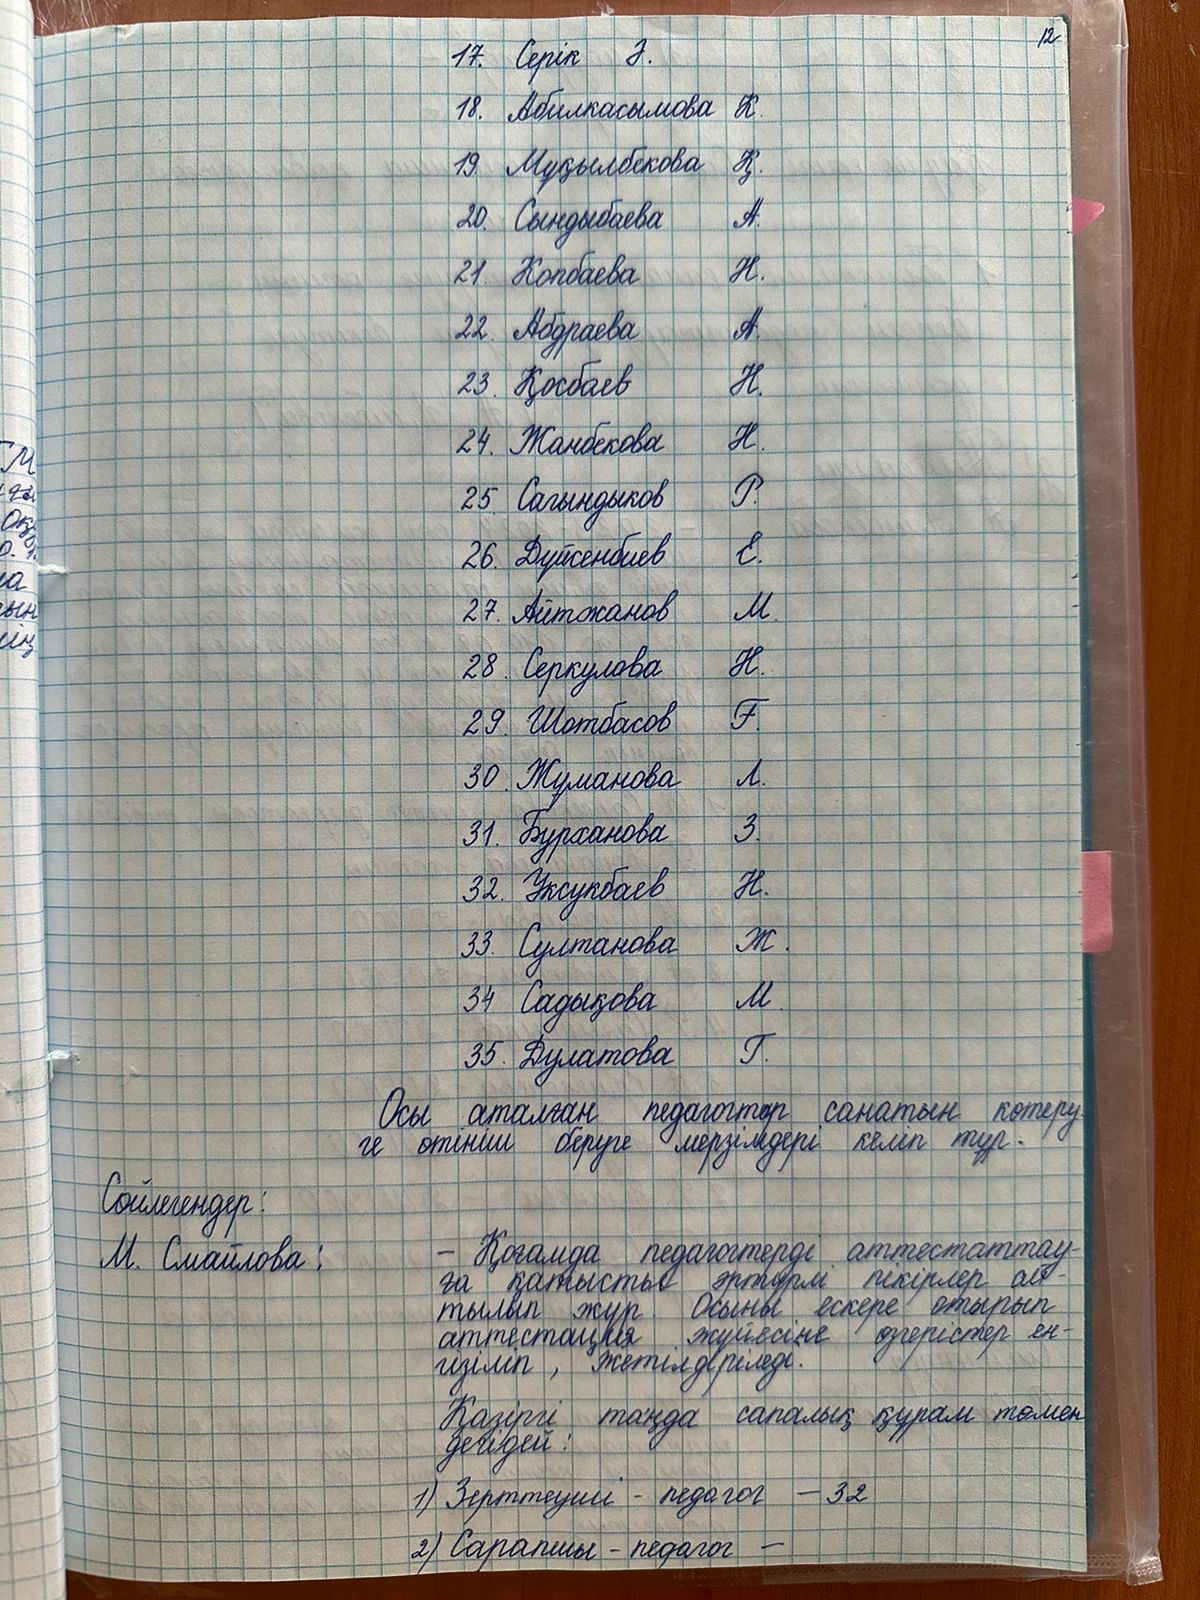 12
17. Серік Ә.
18. Абилкасымова К.
19. Мұқылбекова Қ.
20. Сындыбаева А.
21 Копбаева Н.
22. Абдраева А.
23. Қосбаев Н.
24. Жанбекова Н.
25 Сагындыков Р.
26. Дүйсенбиев Е.
27. Айтжанов М.
28. Серкулова Н.
29. Шотбасов Ғ.
30. Жуманова Л.
31. Бурханова З.
32. Уксукбаев Н.
33. Султанова Ж.
34 Садықова М
35. Дулатова Г.
Осы аталған педагогтар санатын көтеру
ге өтініш беруге мерзімдері келіп тұр.
Сөйлегендер:
М. Смайлова:
- Қоғамда педагогтерді аттестаттау-
ға қатысты әртүрлі пікірлер ай-
тылып жүр. Осыны ескере отырып
аттестация жүйесіне өзгерістер ен-
гізіліп, жетілдіріледі.
Қазіргі таңда сапалық құрам төмен
дегідей:
1) Зерттеуші - педагог – 32
2) Сарапшы - педагог –